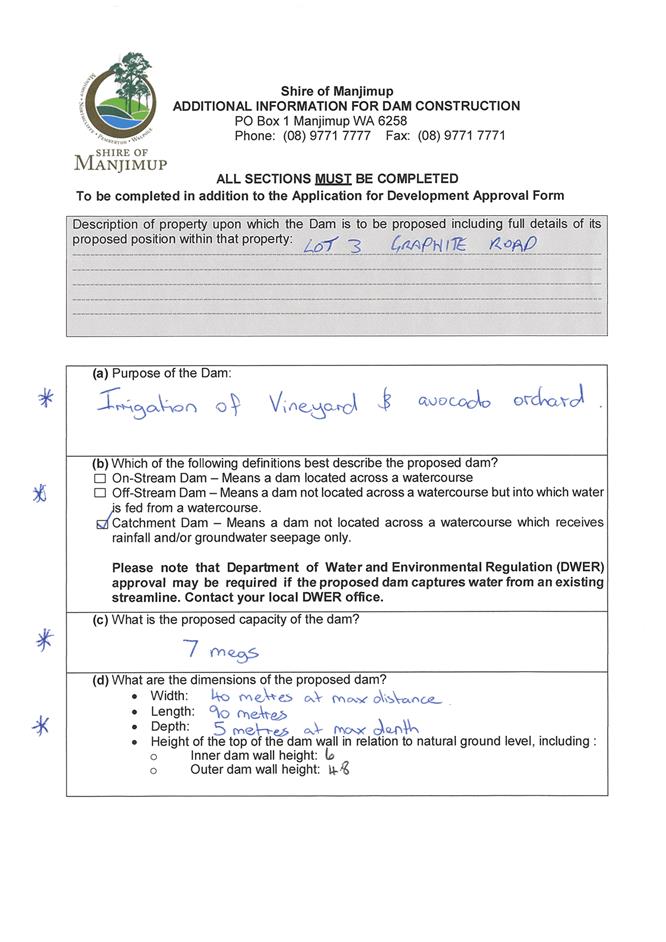 Shire of Manjimup
ADDITIONAL INFORMATION FOR DAM CONSTRUCTION
PO Box 1 Manjimup WA 6258
Phone: (08) 9771 7777 Fax: (08) 9771 7771
MANJIMUP • NORTHCLIFFE • PEMBERTON • WALPOLE
SHIRE OF
MANJIMUP
ALL SECTIONS MUST BE COMPLETED
To be completed in addition to the Application for Development Approval Form
Description of property upon which the Dam is to be proposed including full details of its
proposed position within that property: LOT 3 GRAPHITE ROAD
(a) Purpose of the Dam:
* Irrigation of Vineyard & avocado orchard.
(b) Which of the following definitions best describe the proposed dam?
☐ On-Stream Dam – Means a dam located across a watercourse
* ☐ Off-Stream Dam – Means a dam not located across a watercourse but into which water
is fed from a watercourse.
☑ Catchment Dam – Means a dam not located across a watercourse which receives
rainfall and/or groundwater seepage only.
Please note that Department of Water and Environmental Regulation (DWER)
approval may be required if the proposed dam captures water from an existing
streamline. Contact your local DWER office.
(c) What is the proposed capacity of the dam?
* 7 megs
(d) What are the dimensions of the proposed dam?
• Width: 40 metres at max distance.
• Length: 90 metres
* • Depth: 5 metres at max depth
• Height of the top of the dam wall in relation to natural ground level, including :
o Inner dam wall height: 6
o Outer dam wall height: 4.8